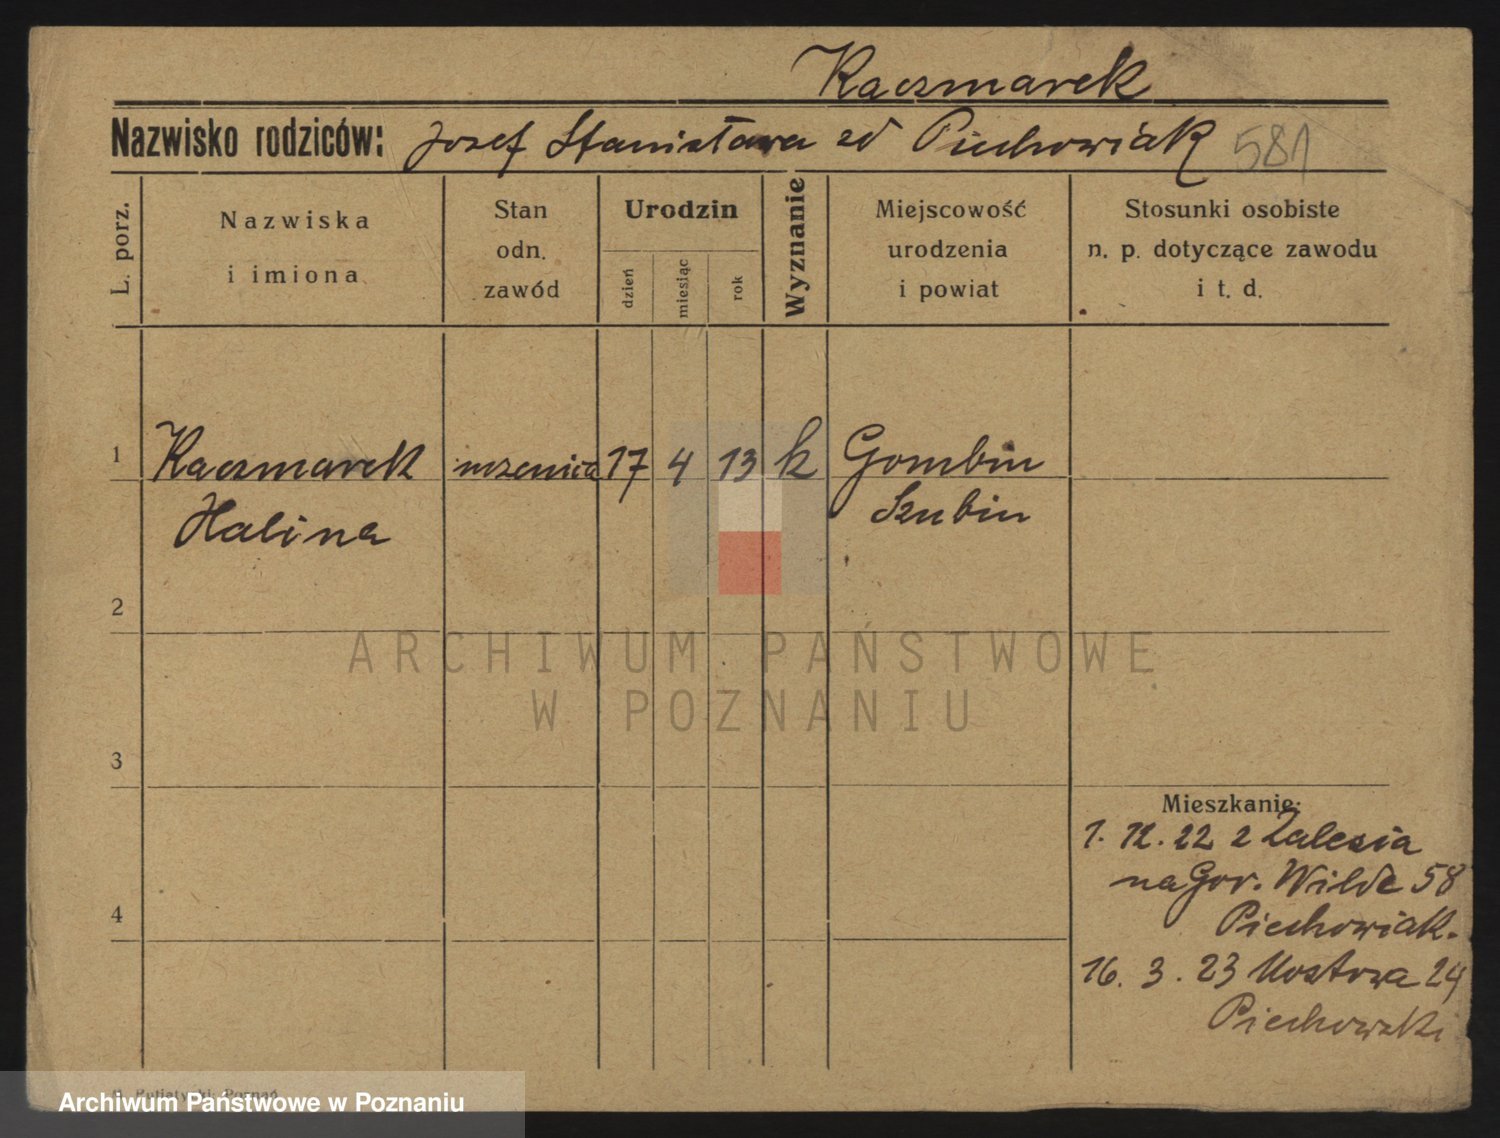 Kaczmarek
Nazwisko rodziców: Josef Stanisława zd Piechowiak 581
L. porz.
Nazwiska
i imiona
Stan
odn.
zawód
Urodzin
dzień
miesiąc
rok
Wyznanie
Miejscowość
urodzenia
i powiat
Stosunki osobiste
n. p. dotyczące zawodu
i t. d.
1 Kaczmarek uczenica 17 4 13 k Gombin
Halina Szubin
2
ARCHIWUM PAŃSTWOWE
W POZNANIU
3
Mieszkanie:
1. 12. 22 z Zalesia
na Gor. Wilde 58
4
Piechowiak.
16. 3. 23 Mostowa 24
Piechowski
Poznań
Archiwum Państwowe w Poznaniu